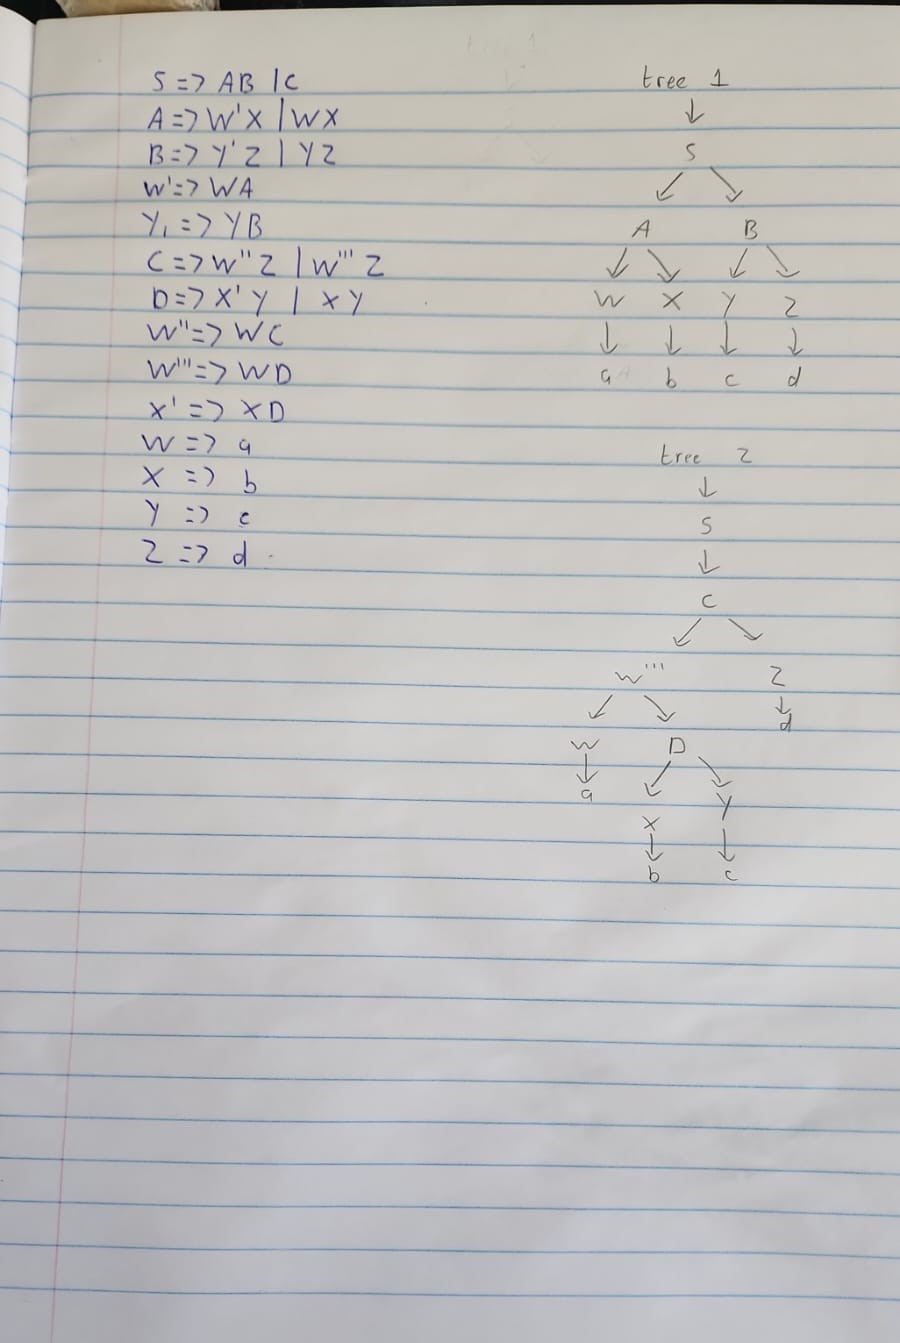 S => AB | C
A => W'X | WX
B => Y'Z | YZ
W' => WA
Y₁ => YB
C => W''Z | W'''Z
D => X'Y | XY
W'' => WC
W''' => WD
X' => XD
W => a
X => b
Y => c
Z => d
tree 1
↓
S
↙ ↘
A B
↙ ↘ ↙ ↘
W X Y Z
↓ ↓ ↓ ↓
a b c d
tree 2
↓
S
↓
C
↙ ↘
W''' Z
↙ ↘ ↓
d
W D
↓ ↙ ↘
a
X Y
↓ ↓
b c